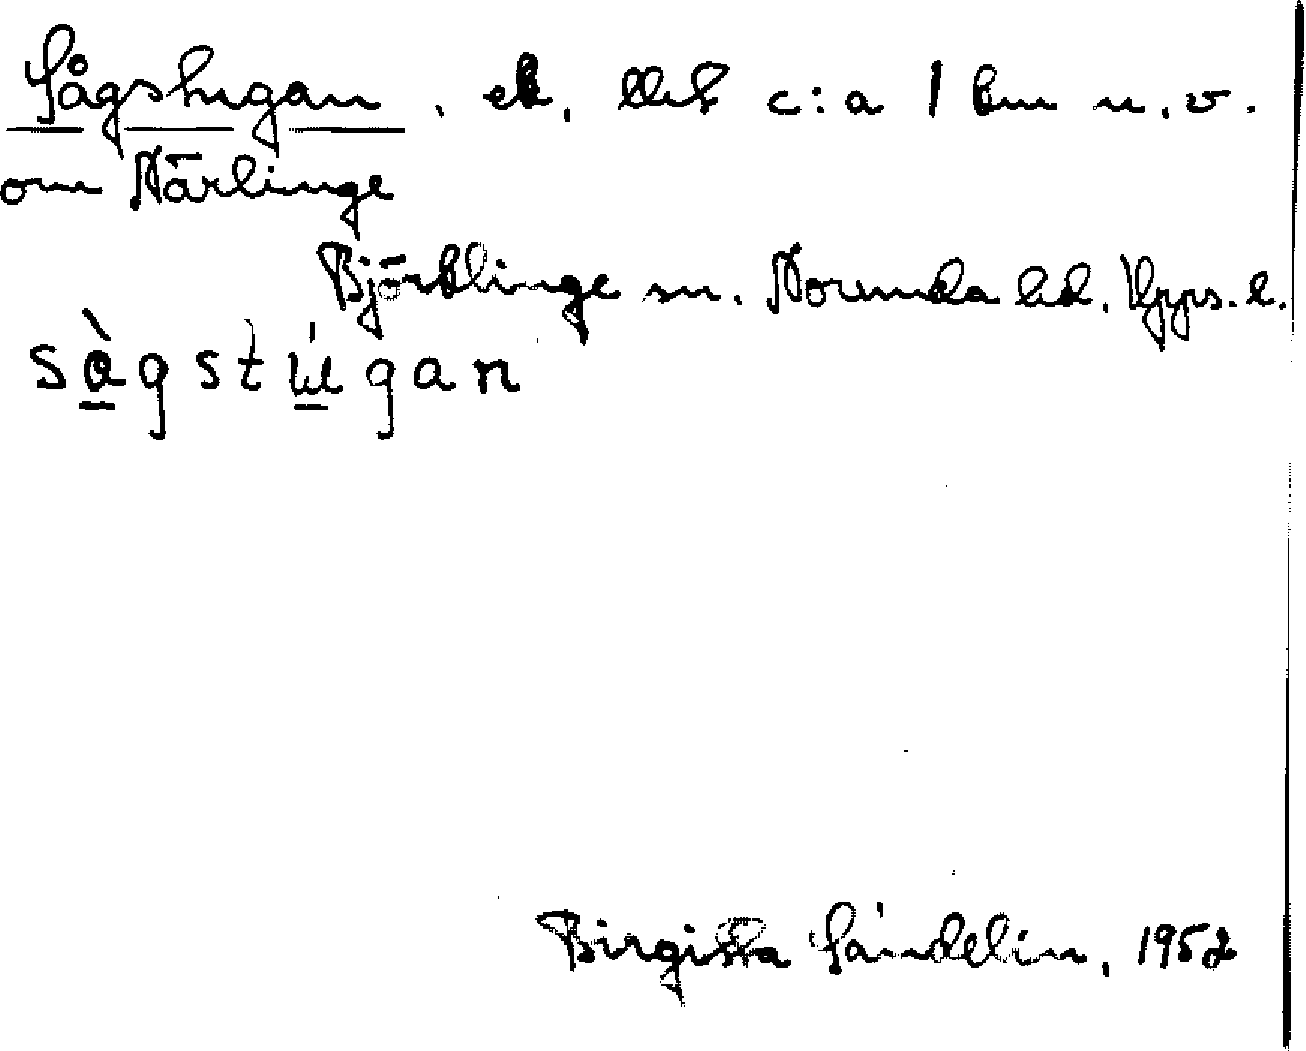 Sågstugan, ek, c:a 1 km n.v.
om Närlinge
Björklinge sn. Norunda hd. Upps. l.
sàgstúgan
Birgitta Sandelin, 1952